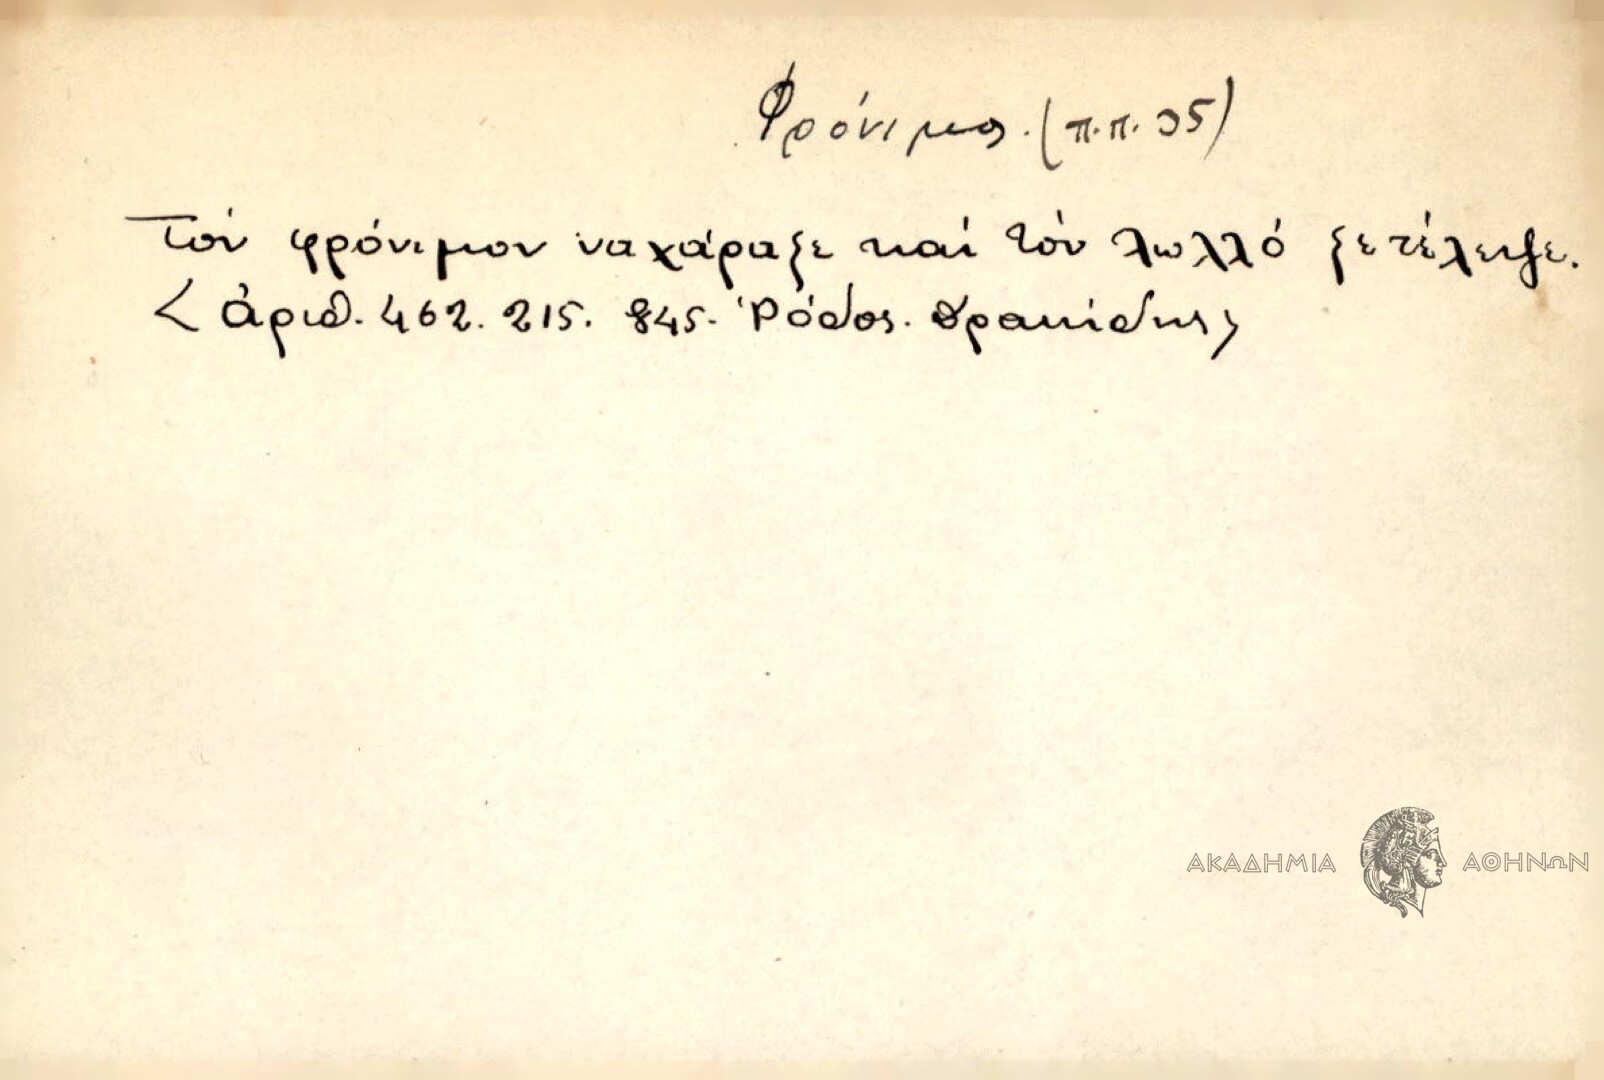 Φρόνιμος. (π.π. 35)
Τόν φρόνιμον ναχάραξε καί τόν λωλλό ξετέλειψε.
< ἀριθ. 462. 215. 845. Ῥόδος. Δρακίδης >
ΑΚΑΔΗΜΙΑ ΑΘΗΝΩΝ